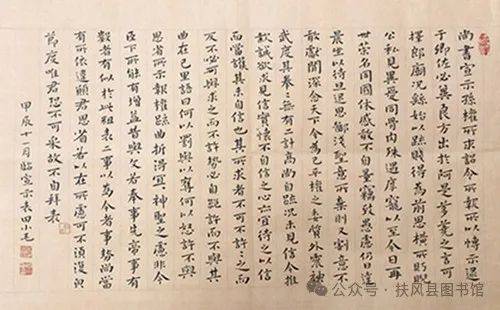 尚書宣示孫權所求詔令所報所以博示逮
于卿佐必冀良方出於阿是芻蕘之言可
擇郎廟況繇始以疏賤得為前恩橫所盱睨
公私見異愛同骨肉殊遇厚寵以至今日再
世榮名同國休慼敢不自量竊致愚慮仍日達
晨坐以待旦退思鄙淺聖意所棄則又割意不
敢獻聞深念天下今為已平權之委質外震神
武度其拳拳無有二計高尚自疏況未見信今推
款誠欲求見信實懷不自信之心亦宜待之以信
而當護其未自信也其所求者不可不許許之而
反不必可與求之而不許勢必自絕許而不與其
曲在己里語曰何以罰與以奪何以怒許不與
思省所示報權疏曲折得宜宜神聖之慮非今
臣下所能有增益昔與文若奉事先帝事有
數者有似於此粗表二事以為今者事勢尚當
有所依違願君思省若以在所慮可不須復貌
節度唯君恐不可采故不自拜表
甲辰十一月臨宣示表田小
公众号·扶风县图书馆